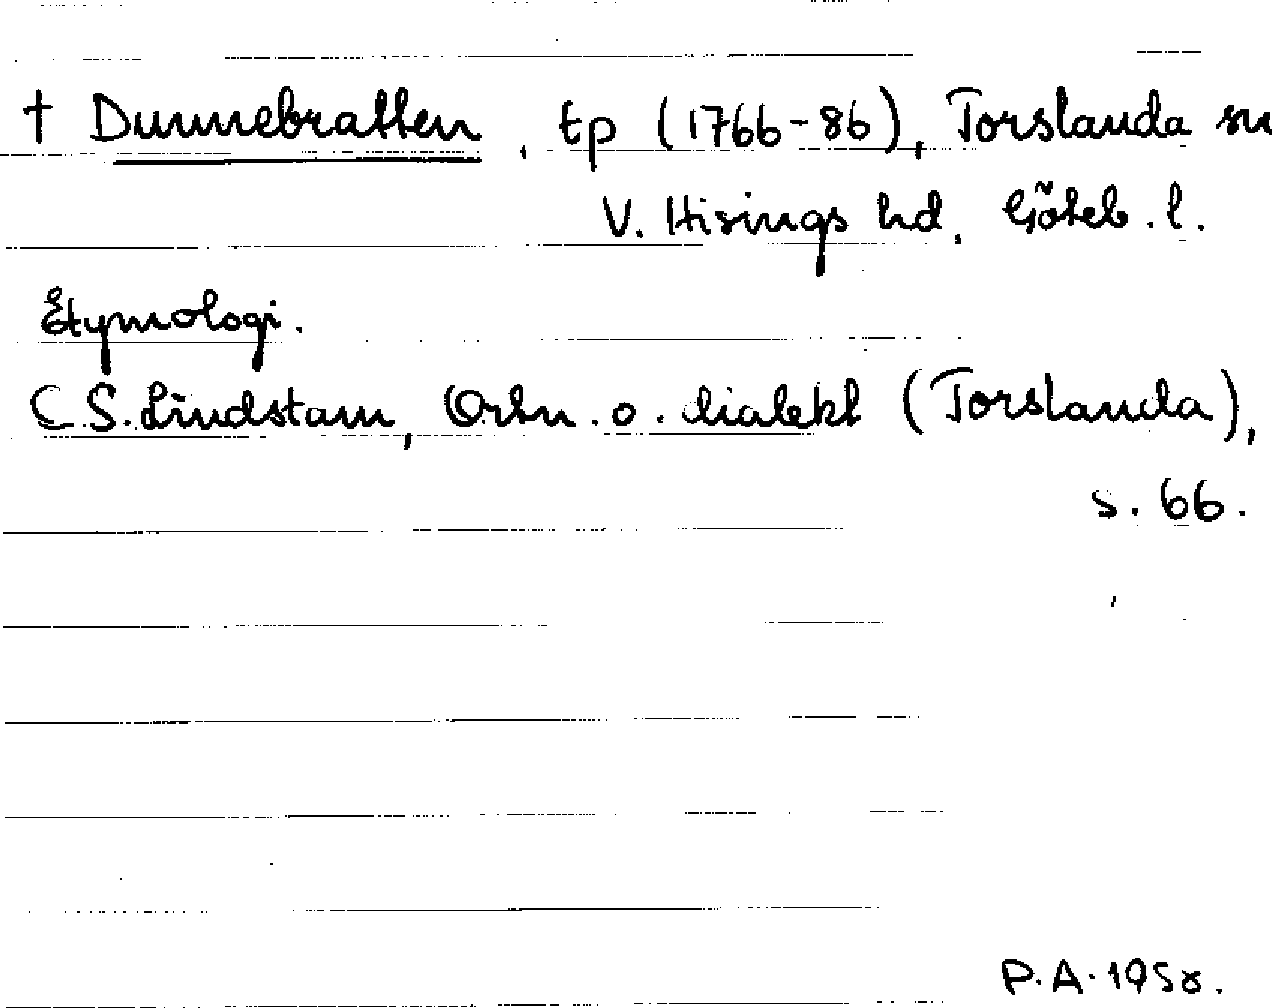 † Dunnebratten, tp (1766-86), Torslanda sn
V. Hisings hd, Göteb. l.
Etymologi.
C.S. Lindstam, Ortn. o. dialekt (Torslanda),
s. 66.
P.A. 1958.